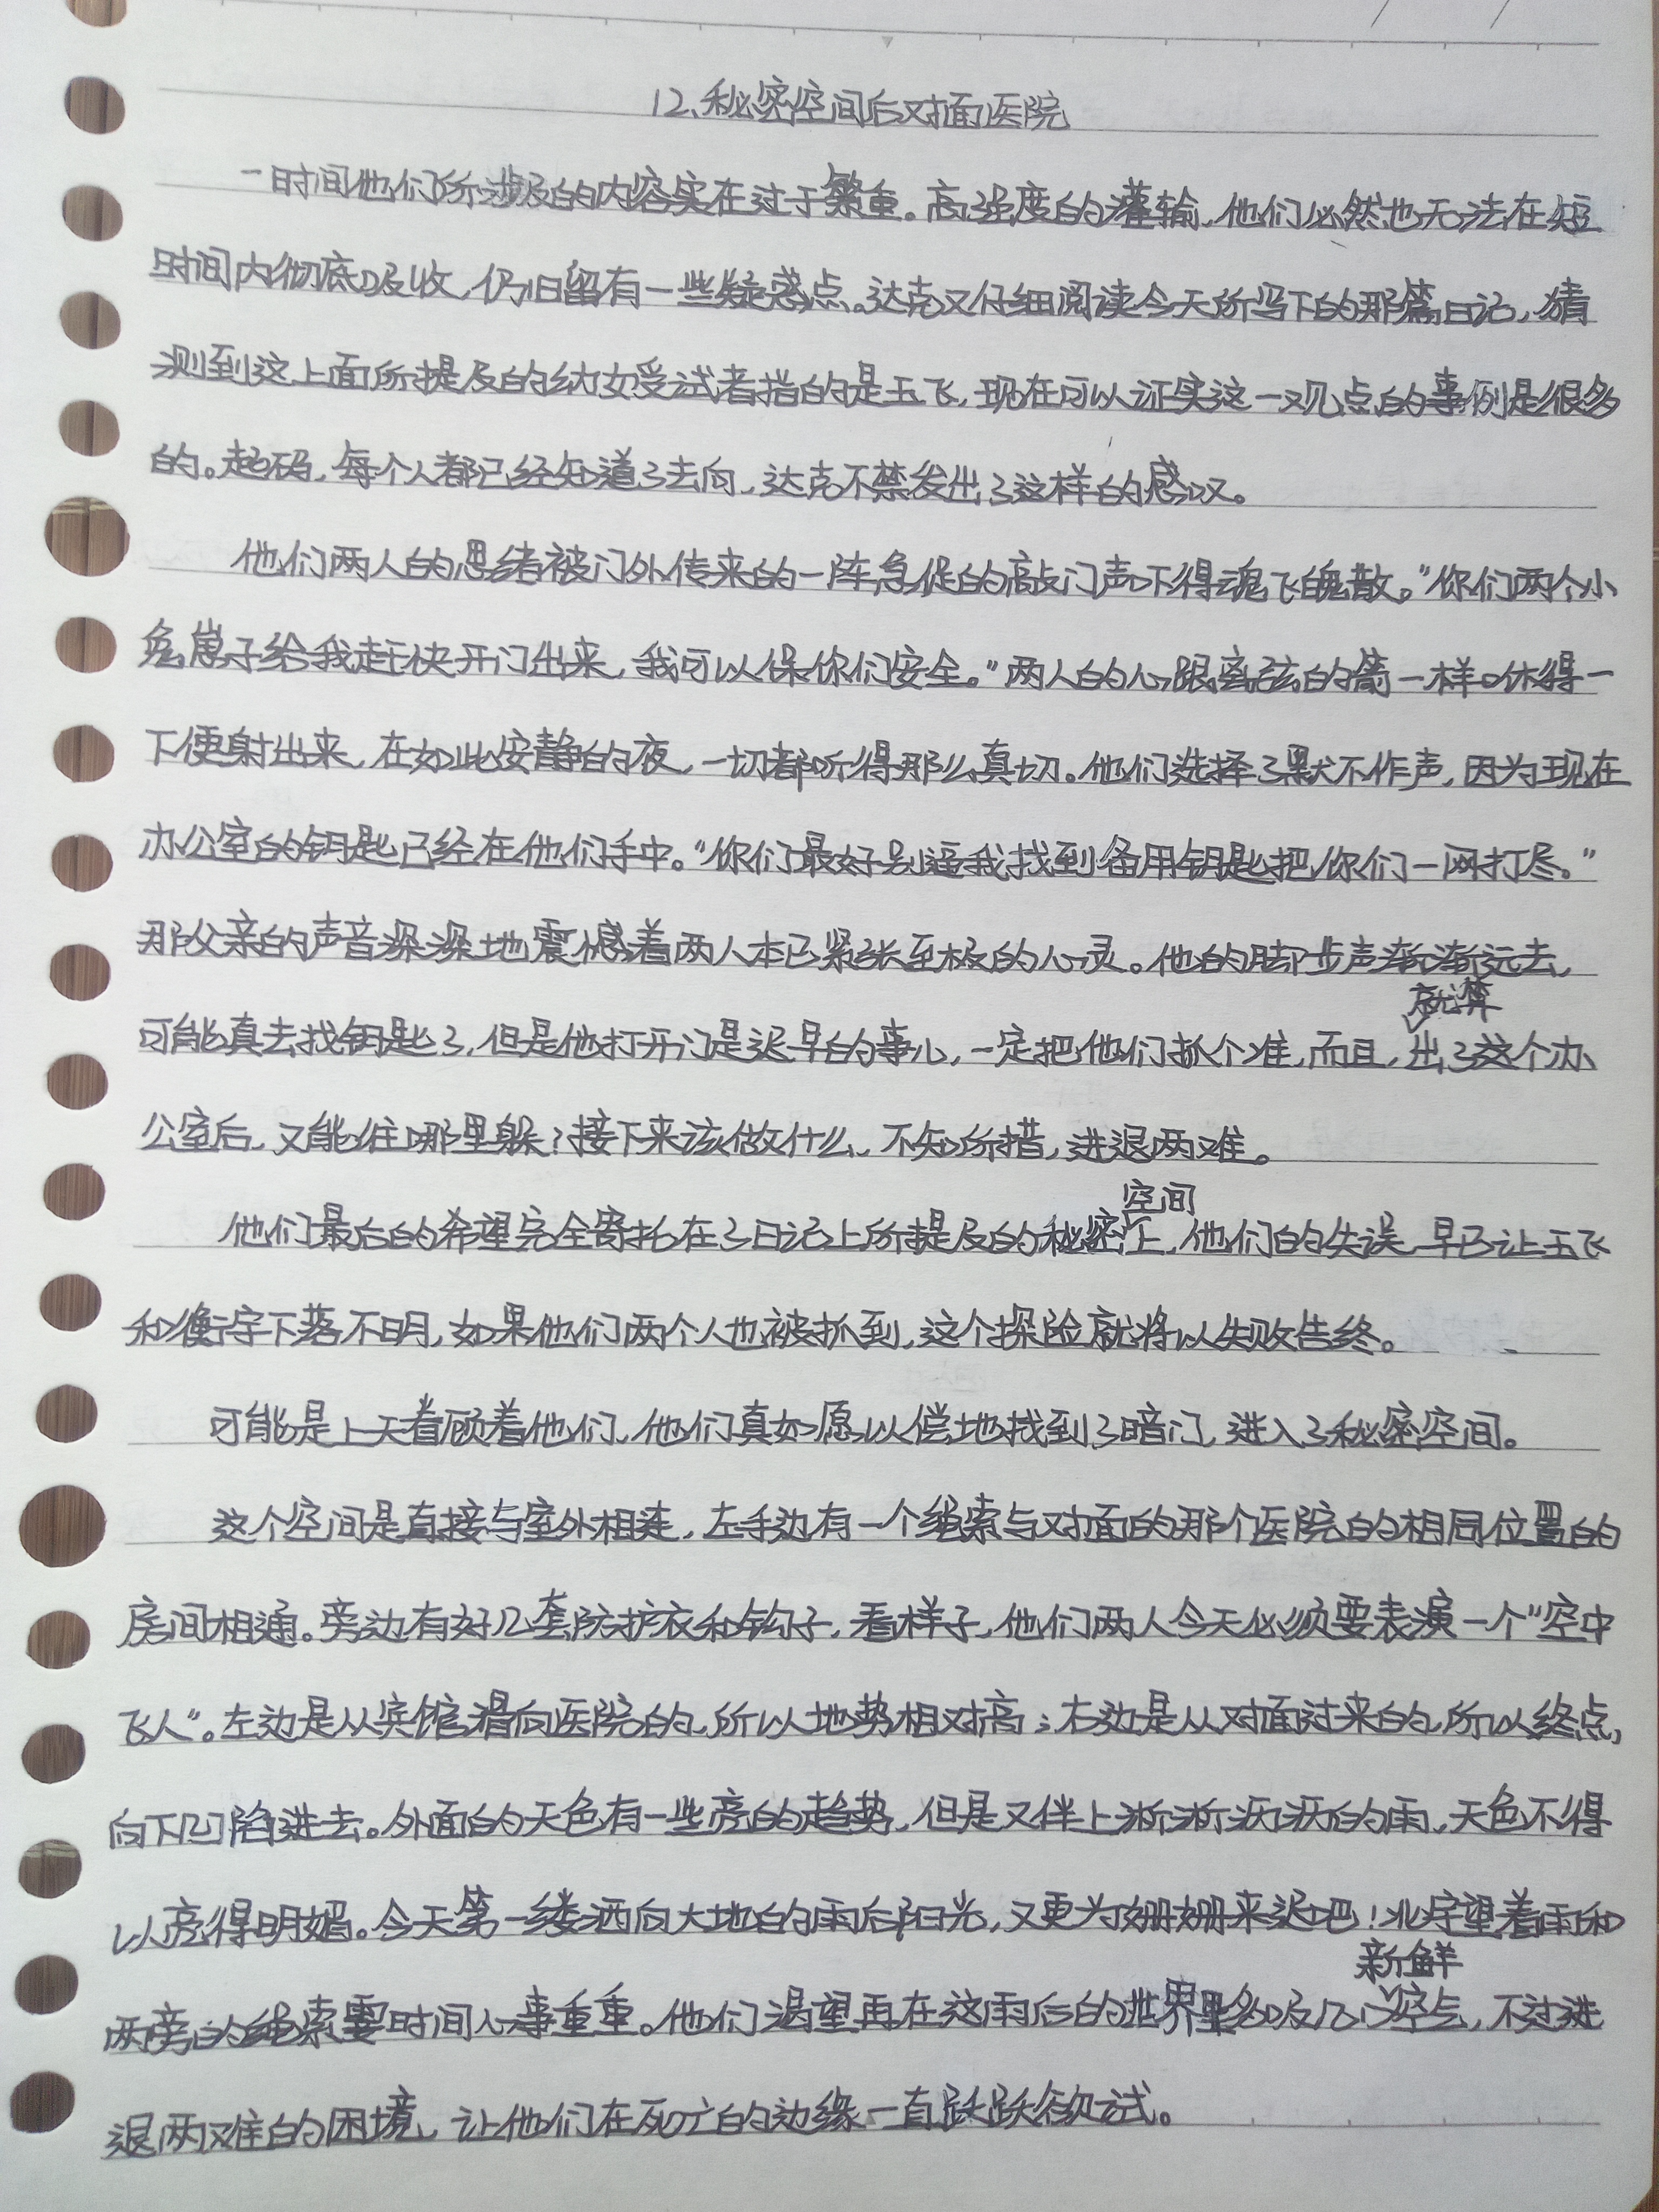 12、秘密空间后对面医院
一时间他们所涉及的内容实在过于繁重。高强度的灌输，他们必然也无法在短
时间内彻底吸收，仍旧留有一些疑惑点。达克又仔细阅读今天所写下的那篇日记，猜
测到这上面所提及的纳如受试者指的是玉飞，现在可以证实这一观点的事例是很多
的。起码，每个人都已经知道了去向，达克不禁发出了这样的感叹。
他们两人的思绪被门外传来的一阵急促的敲门声吓得魂飞魄散。“你们两个小
兔崽子给我赶快开门出来，我可以保你们安全。”两人的心跟离弦的箭一样咻得一
下便射出来，在如此安静的夜，一切都听得那么真切。他们选择了默不作声，因为现在
办公室的钥匙已经在他们手中。“你们最好别逼我找到备用钥匙把你们一网打尽。”
那父亲的声音深深地震憾着两人本已紧张至极的心灵。他的脚步声渐渐远去，
可能真去找钥匙了，但是他打开门是迟早的事儿，一定把他们抓个准，而且，就算出了这个办
公室后，又能往哪里躲？接下来该做什么，不知所措，进退两难。
他们最后的希望完全寄托在了日记上所提及的秘密空间上，他们的失误，早已让玉飞
和衡宇下落不明，如果他们两个人也被抓到，这个探险就将以失败告终。
可能是上天眷顾着他们，他们真如愿以偿地找到了暗门，进入了秘密空间。
这个空间是直接与室外相连，左手边有一个绳索与对面的那个医院的相同位置的
房间相通。旁边有好几套防护衣和钩子，看样子，他们两人今天必须要表演一个“空中
飞人”。左边是从宾馆滑向医院的，所以地势相对高；右边是从对面过来的，所以终点，
向下凹陷进去。外面的天色有一些亮的趋势，但是又伴上淅淅沥沥的雨，天色不得
以亮得明媚。今天第一缕洒向大地的雨后阳光，又更为姗姗来迟吧！北宇望着雨和
两旁的绳索霎时间心事重重。他们渴望再在这雨后的世界里多吸几口新鲜空气，不过进
退两难的困境，让他们在死亡的边缘一直跃跃欲试。